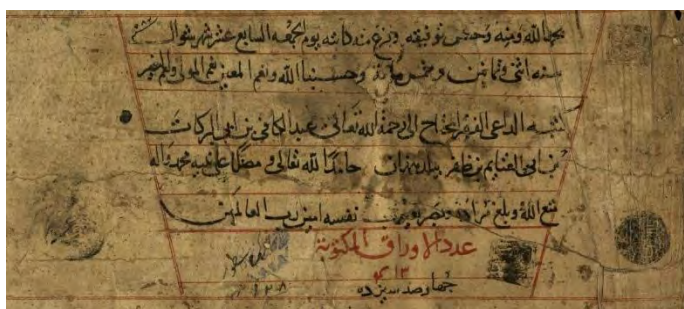 بحمد الله ومنه وحسن توفيقه وفرغ من كتابته يوم الجمعه السابع عشر شهر شوال
سنه اثنى وثمانين وخمس مائة وحسبنا الله ونعم المعين نعم المولى ونعم النصير
كتبه الداعى الفقير المحتاج الى رحمة الله تعالى عبد الكافى بن ابى البركات
بن ابى الغنايم بن ظفر ببلد همدان حامدا لله تعالى ومصليا على نبيه محمد واله
متع الله وبلغ مراده نفسه امين رب العالمين
عدد الاوراق المكتوبة
٤١٣
چهار صد سيزده